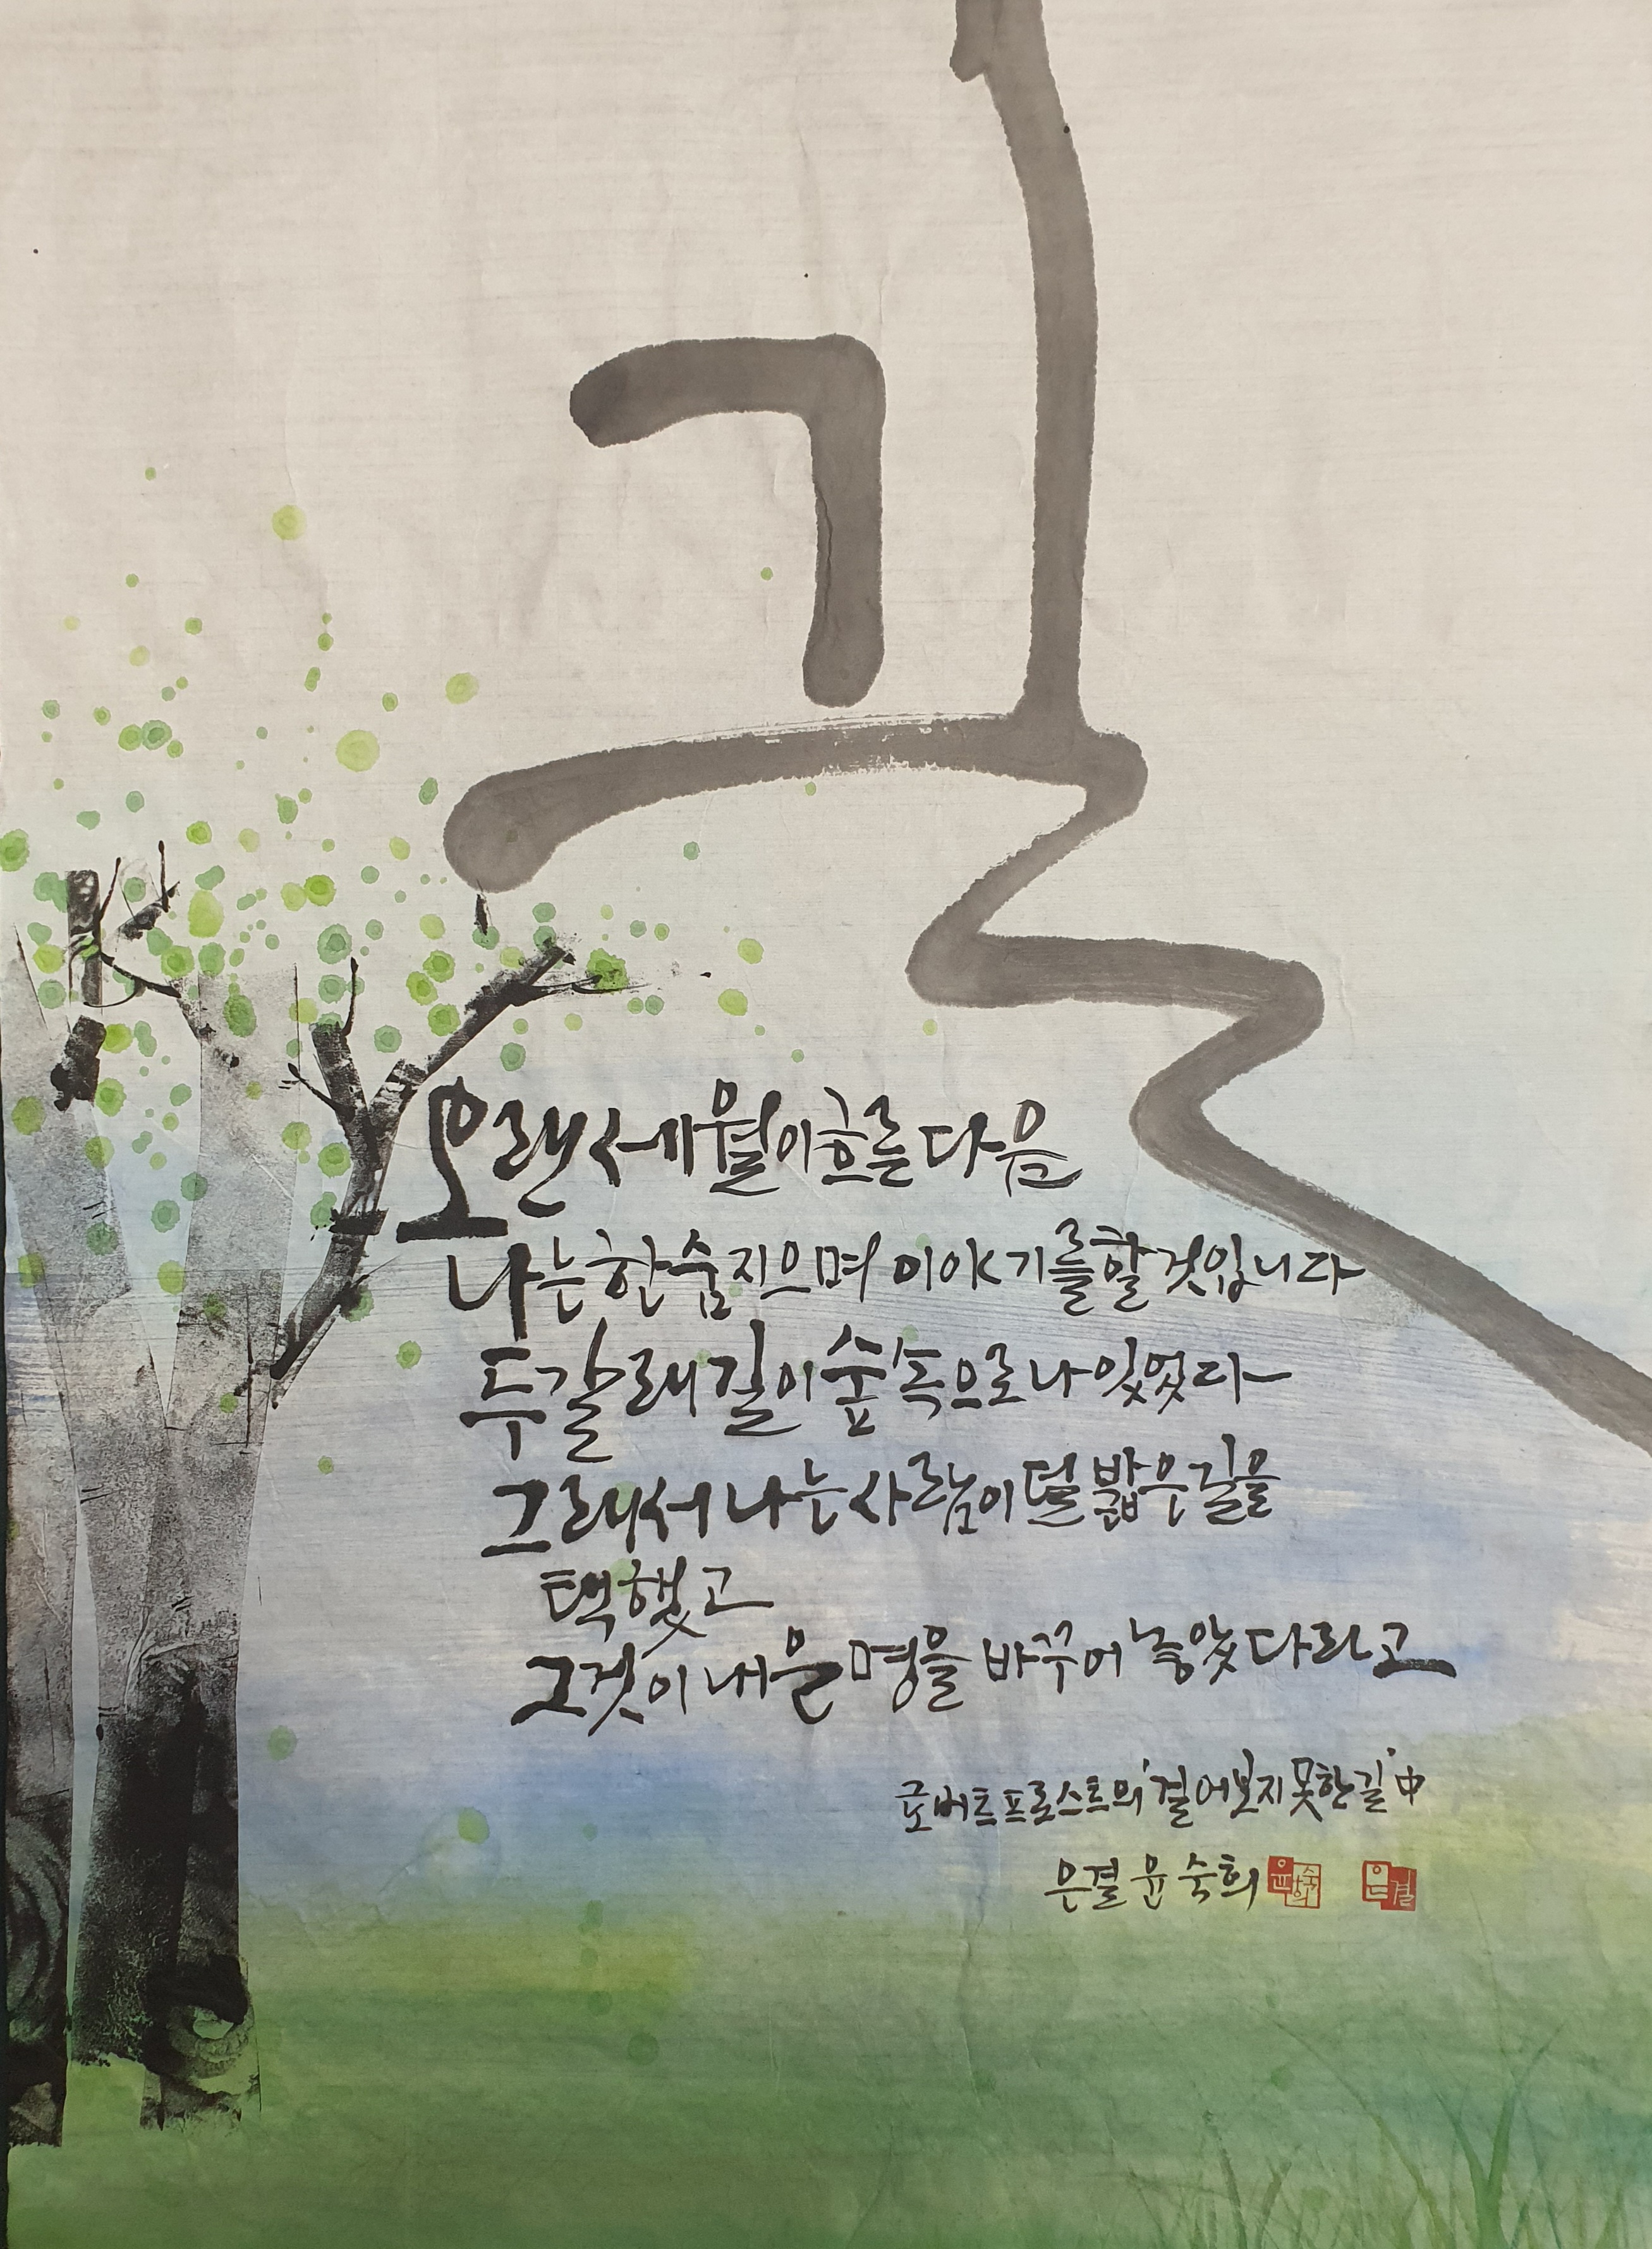 길
오랜 세월이 흐른 다음
나는 한숨지으며 이야기를 할 것입니다
두갈래 길이 숲속으로 나 있었다
그래서 나는 사람이 덜 밟은 길을
택했고
그것이 내 운명을 바꾸어 놓았다라고
로버트 프로스트의 '걸어보지 못한 길' 中
은결 윤숙희 윤숙희 은결